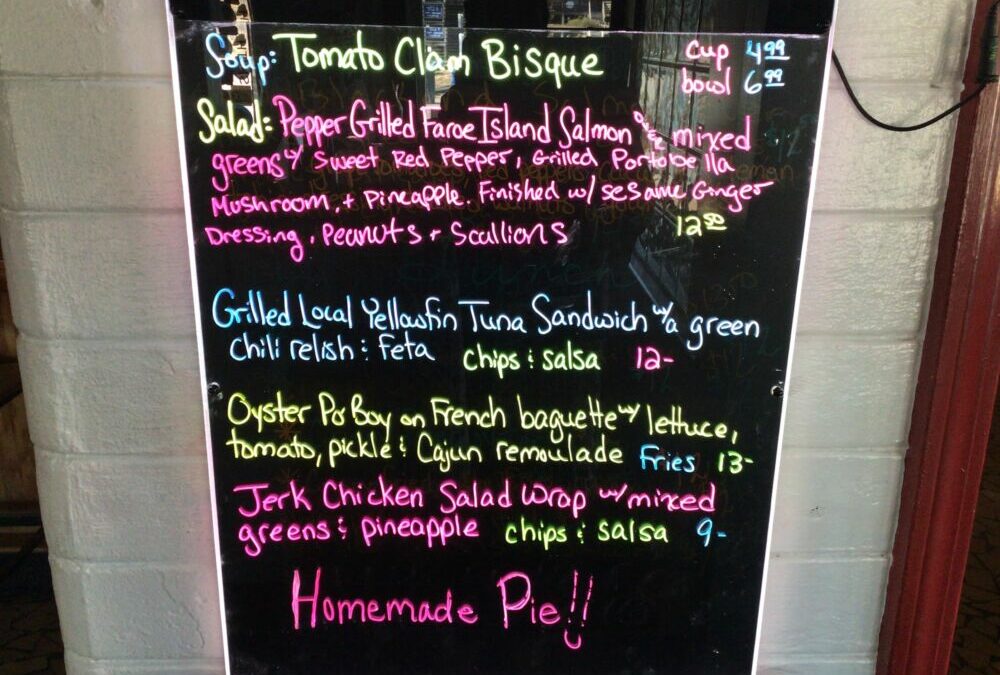 Soup: Tomato Clam Bisque cup 4.99
bowl 6.99
Salad: Pepper Grilled Faroe Island Salmon over mixed
greens w/ Sweet Red Pepper, Grilled Portobella
Mushroom, + Pineapple. Finished w/ Sesame Ginger
Dressing, Peanuts + Scallions 12.50
Grilled Local Yellowfin Tuna Sandwich w/ a green
chili relish & feta chips & salsa 12-
Oyster Po Boy on French baguette w/ lettuce,
tomato, pickle & Cajun remoulade Fries 13-
Jerk Chicken Salad Wrap w/ mixed
greens & pineapple chips & salsa 9-
Homemade Pie!!